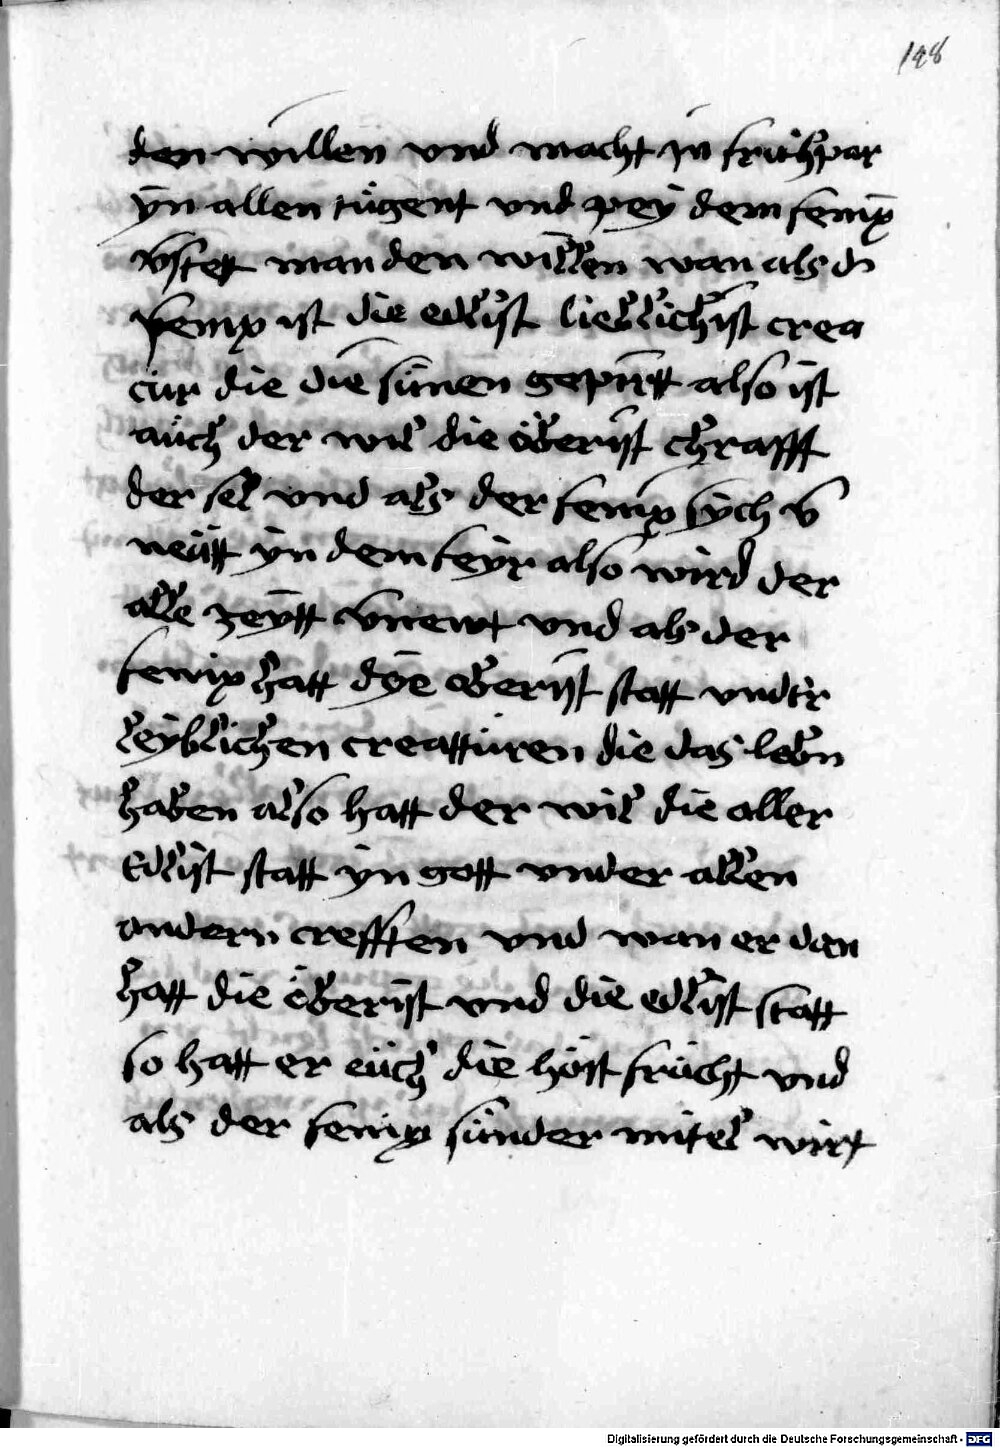 148
den willen vnd macht in fruchper
yn allen tugent vnd pey dem fenix
v̄stett man den willen wan als d̄
fenix ist die edlist lieblichist crea
tur die die sunen gepirtt also ist
auch der wil die öberist chrafft
der sel vnd als der fenix sych v̄
neütt yn dem feyr also wird der
alle zeytt v̄newt vnd als der
fenix hatt dye oberist statt vndter
leyblichen creatturen die das lebn
haben also hatt der wil die aller
Edlist statt yn gott vnder allen
andern crefften vnd wan er dan
hatt die öberist vnd die edlist statt
so hatt er auch die höst frücht vnd
als der fenix sunder mitel wirt
Digitalisierung gefördert durch die Deutsche Forschungsgemeinschaft - DFG